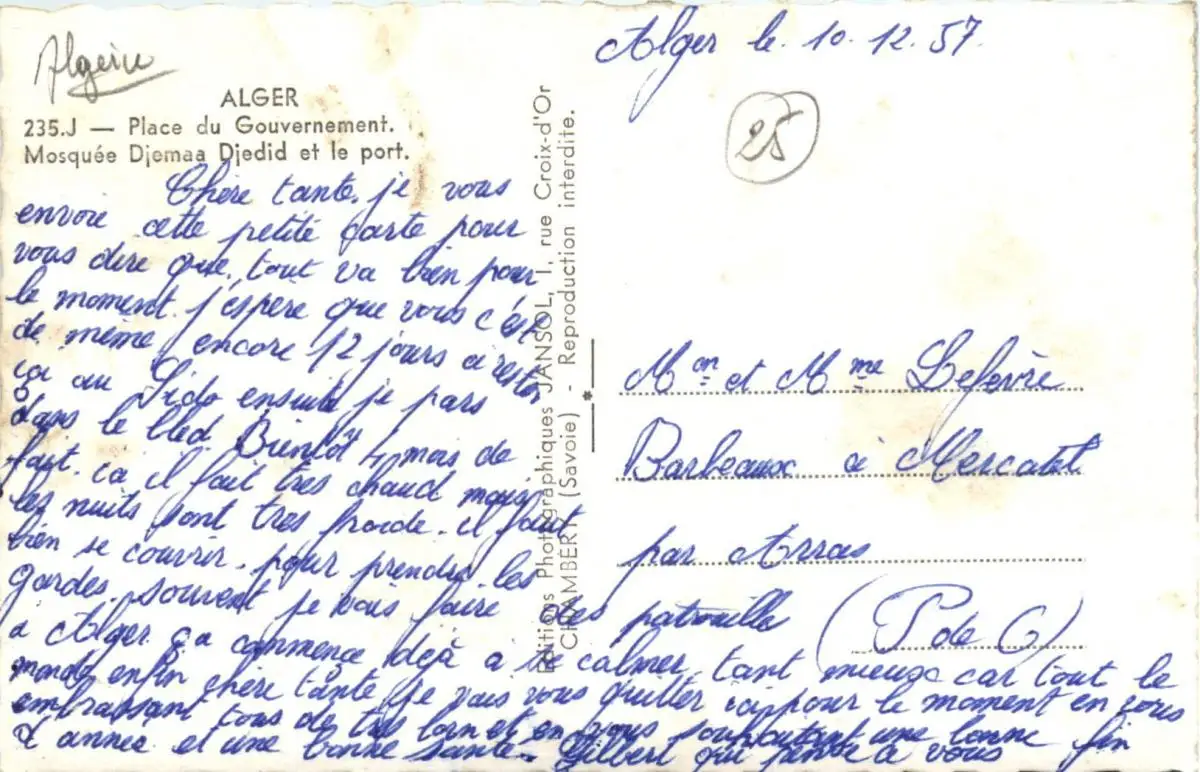 Algérie
ALGER
235.J — Place du Gouvernement.
Mosquée Djemaa Djedid et le port.
Alger le. 10. 12. 57.
25
Chère tante. je vous
envoie cette petite carte pour
vous dire que. tout va bien pour
le moment. j'espère que vous c'est
de même encore 12 jours a rester
ici au Lido ensuite je pars
dans le bled Bientôt 4 mois de
fait. ca il fait très chaud mais
les nuits sont tres froide. il faut
bien se couvrir. pour prendre les
gardes. souvent je vais faire des patrouille
a Alger ça commence déjà a se calmer. tant mieux car tout le
monde enfin chère tante je vais vous quitter ici pour le moment en vous
embrassant tous de très loin et en vous souhaitant une bonne fin
d'annee et une bonne santé. Gilbert qui pense a vous
Editions Photographiques JANSOL, 1, rue Croix-d'Or
CHAMBERY (Savoie) - Reproduction interdite.
Mon et Mme Lefevre
Barbeaux a Mercatel
par Arras
(P de C)